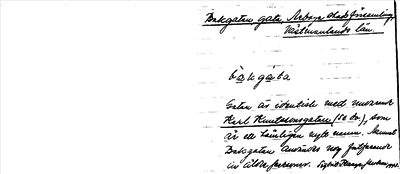 Bakgatan gata, Arboga stadsförsamling,
Västmanlands län.
bàkgàta
Gatan är identisk med nuvarande
Karl Knutssonsgatan (se d.o.), som
är ett nytt namn. Namnet
Bakgatan användes nog fortfarande
av äldre personer.